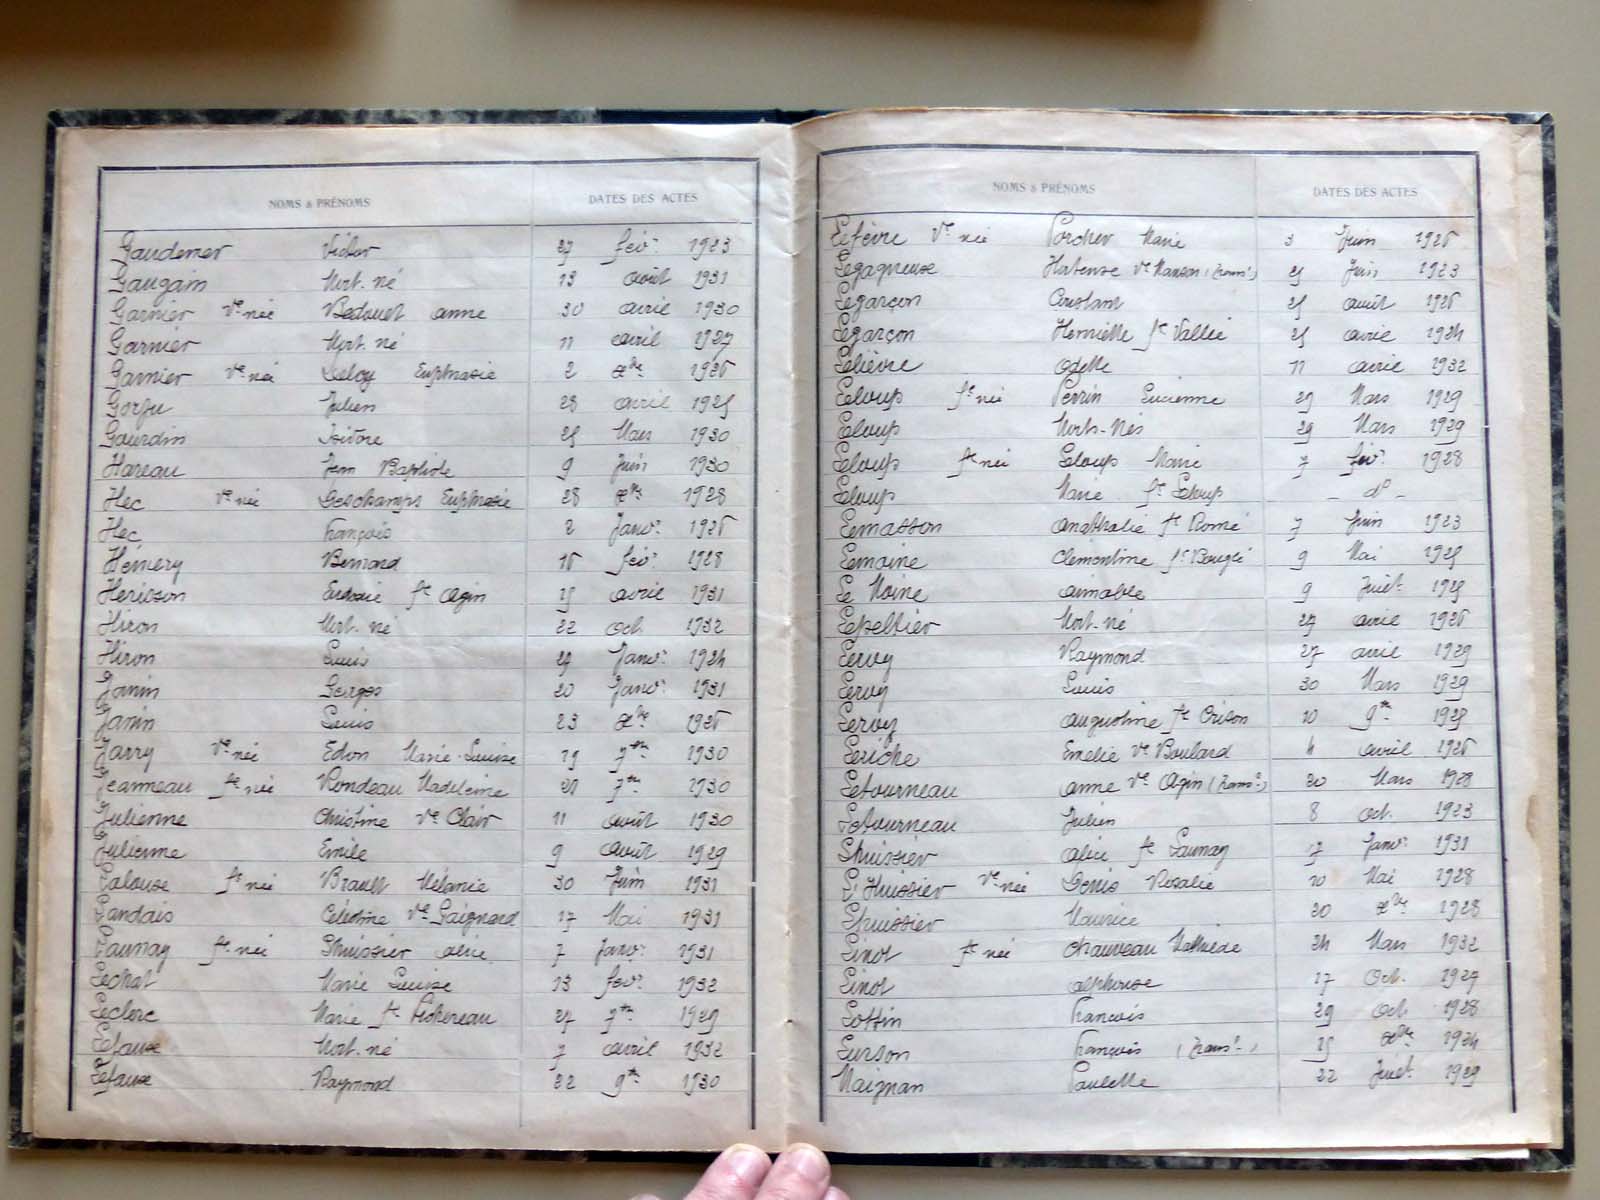 NOMS & PRÉNOMS DATES DES ACTES
Gaudemer Victor 27 fév. 1923
Gaugain Mort-né 13 août 1931
Garnier Ve née Bedouet anne 30 avril 1930
Garnier Mort-né 11 avril 1927
Garnier Ve née Deloy Euphrasie 2 Xbre 1926
Gorju Julien 28 avril 1925
Gourdin Isidore 25 Mars 1930
Hareau Jean Baptiste 9 Juin 1930
Hec Ve née Deschamps Euphrasie 28 Xbre 1928
Hec François 2 Janv. 1926
Hémery Bernard 16 fév. 1928
Hérisson Eudoxie fe Agin 15 avril 1931
Hiron Mort-né 22 oct. 1932
Hiron Louis 29 Janv. 1924
Janin Georges 20 Janv. 1931
Janin Louis 23 Xbre 1926
Jarry Ve née Edon Marie-Louise 19 7bre 1930
Jeanneau fe née Rondeau Madeleine 21 7bre 1930
Julienne Christine Ve Clair 11 août 1930
Julienne Emile 9 août 1929
Lalouse fe née Brault Mélanie 30 Juin 1931
Landais Célestine Ve Gaignard 17 Mai 1931
Launay fe née Lhuissier alice 7 Janv. 1931
Lechat Marie Louise 13 fév. 1932
Leclerc Marie fe Pichereau 27 7bre 1929
Lefaux Mort-né 7 avril 1932
Lefaux Raymond 22 9bre 1930
NOMS & PRÉNOMS DATES DES ACTES
Lefèvre Ve née Porcher Marie 3 Juin 1926
Legagneuse Hortense Ve Manson (Trans.) 25 Juin 1923
Legarçon Constant 25 août 1926
Legarçon Henriette fe Vallée 25 avril 1924
Lelièvre Odette 11 avril 1932
Leloup fe née Perrin Lucienne 29 Mars 1929
Leloup Morts-Nés 29 Mars 1929
Leloup fe née Leloup Marie 7 fév. 1928
Leloup Marie fe Leloup - do -
Lemasson anathalie fe Romé 7 Juin 1923
Lemoine Clémentine fe Bouglé 9 Mai 1925
Le Moine aimable 9 Juiet 1925
Lepeltier Mort-né 27 avril 1926
Leroy Raymond 27 avril 1929
Leroy Louis 30 Mars 1929
Leroy augustine fe Crison 10 9bre 1925
Leriche Emélie Ve Boulard 4 avril 1926
Letourneau anne Ve Agin (Trans.) 20 Mars 1928
Letourneau Julien 8 oct. 1923
Lhuissier alice fe Launay 7 Janv. 1931
L'Huissier Ve née Denis Rosalie 10 Mai 1928
Lhuissier Maurice 20 Xbre 1928
Linot fe née Chauveau Mathilde 24 Mars 1932
Linot alphonse 17 Oct. 1927
Lottin François 29 Oct. 1928
Lurson François (Trans.) 15 Xbre 1924
Maignan Paulette 22 Juiet 1929